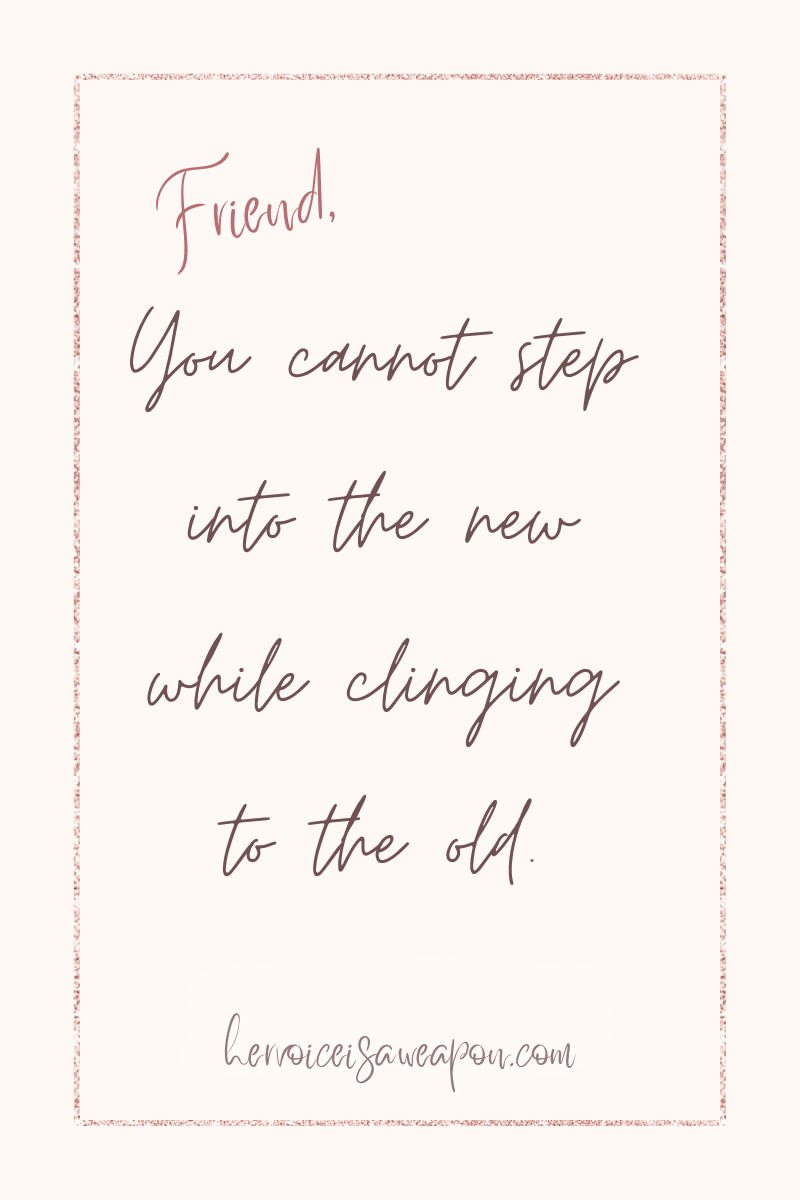 Friend,
You cannot step
into the new
while clinging
to the old.
hervoiceisaweapon.com